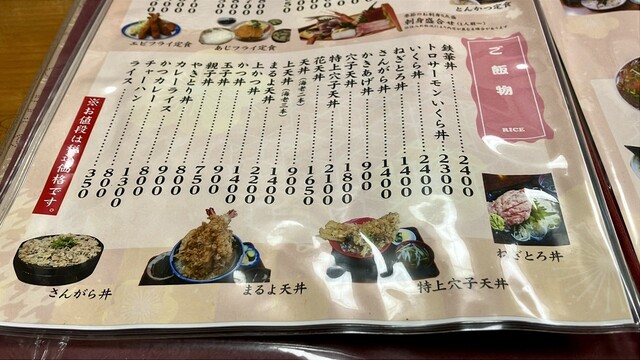 エビフライ定食
あじフライ定食
刺身盛合せ(1人前〜)
とんかつ定食
ご飯物
RICE
鉄華丼 2400
トロサーモンいくら丼 2300
いくら丼 2400
ねぎとろ丼 1400
さんがら丼 1400
かきあげ丼 900
穴子天丼 1800
特上穴子天丼 2100
花天丼 1650
天丼(海老二本) 900
上天丼(海老三本) 1400
まるよ天丼 2200
上かつ丼 1400
かつ丼 900
玉子丼 750
親子丼
やきとり丼 900
カレーライス 800
かつカレー 1300
チャーハン 800
ライス 350
※お値段は 価格です。
ねぎとろ丼
特上穴子天丼
まるよ天丼
さんがら丼